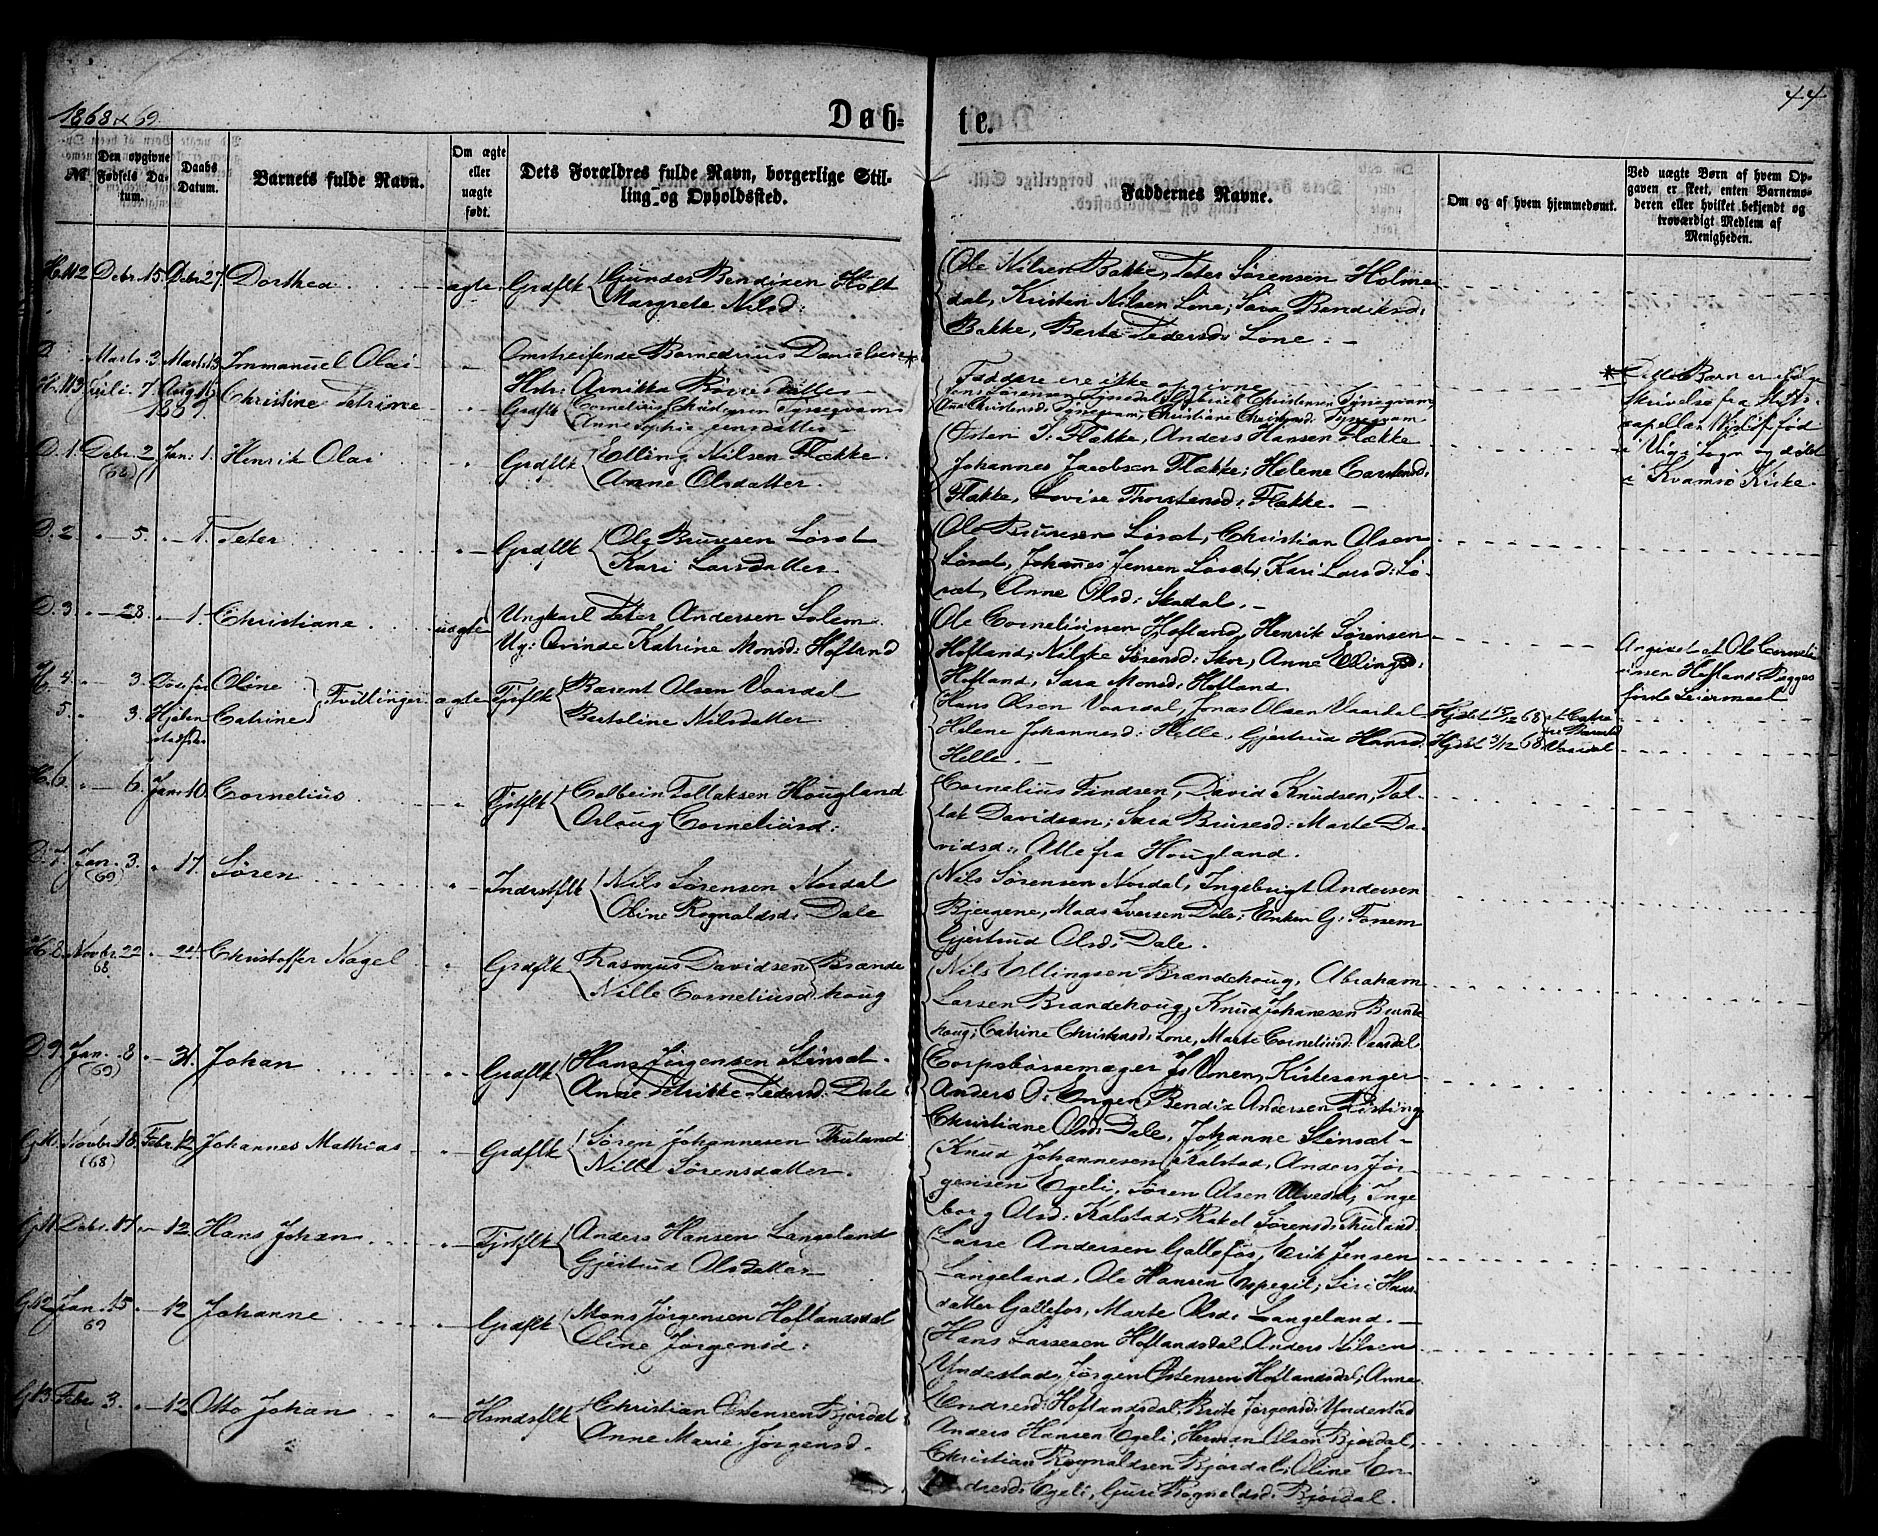 1868 & 69.
Døb-
te.
44
№
Den opgivne Fødsels Datum.
Daabs Datum.
Barnets fulde Navn.
Om ægte eller uægte født.
Dets Forældres fulde Navn, borgerlige Stilling og Opholdssted.
Faddernes Navne.
Om og af hvem hjemmedømt.
Ved uægte Børn af hvem Opgaven er skeet, enten Barnemoderen eller hvilket bekjendt og troværdigt Medlem af Menigheden.
H. 112 Debr. 15. Debr. 27. Dorthea ægte Grdflk Gunder Bendixen Holt
Margrete Nilsd:
Ole Nilsen Bakke, Peter Sørensen Holme-
dal, Kristen Nilsen Lone; Sara Bendiksd:
Bakke, Berte Pedersd: Lone. -
D Marts 3. Marts 13. Immanuel Olai " Omstreifende Danielsen *
Faddere ere ikke opgivne
H. 113 Juli 7. Christine Petrine " Grdflk Cornelius Christensen
Anne Sophie Jensdatter -
* Dette Barn er ifølge
Skrivelse fra
capellan født
i Sogn og døbt
i Kvamsø Kirke.
D. 1. Debr. 2 (68) Jan: 1. Henrik Olai " Grdflk Elling Nilsen Flække.
Anne Olsdatter.
Østen J. Flække, Anders Hansen Flække
Johannes Jacobsen Flække; Helene Carstensd:
Flække, Lovise Thorstensd: Flække. -
D. 2 " - 5. " - 1. Peter " Grdflk Ole Brunsen Løset
Kari Larsdatter.
Ole Brunsen Løset, Christian Olsen
Løset, Johannes Jensen Løset; Kari Larsd: Lø-
set, Anne Olsd: Skadal. -
D. 3. " - 28. " - 1. Christiane uægte Ungkarl Peter Andersen Solem.
Ug: Qvinde Katrine Monsd: Hofland
Ole Corneliussen Hofland, Henrik Sørensen
Hofland; Nilske Sørensd: Skor, Anne Ellingsd:
Hofland, Sara Monsd: Hofland
Angivet af Ole Corneli
ussen Hofland Begges
første Leiermaal
H. 4. " - 3. Døde før Oline
5. " - 3. Hjem Catrine Tvillinger ægte Pjflk Bærent Olsen Vaardal
Bertoline Nilsdatter
Hans Olsen Vaardal, Jonas Olsen Vaardal
Helene Johannesd: Helle, Gjertrud Hansd:
Helle. -
H. 6. " - 6. Jan: 10. Cornelius " Pjtflk Colbein Tollaksen Hougland
Aslaug Corneliusd:
Cornelius Findsen, David Knudsen, Tol-
lak Davidsen; Sara Brunsd: Marte Da-
vidsd: Alle fra Hougland.
D. 7. Jan. 3. (69) " 17. Søren " Inderstflk Nils Sørensen Nordal
Oline Rognaldsd: Dale
Nils Sørensen Nordal, Ingebrigt Andersen
Bjergene, Mads Iversen Dale; Enken G: Fossem
Gjertrud Olsd: Dale.
H. 8. Novbr. 22 68 " - 24 Christoffer Nagel " Grdflk Rasmus Davidsen Brænde
Nille Corneliusd houg
Nils Ellingsen Brændehoug, Abraham
Larsen Brændehoug, Knud Johanesen Brænde
houg; Catrine Christensd: Lone, Marte Corneliusd: Vaardal
D. 9. Jan. 8 (69) " - 31. Johan " Grdflk Hans Jørgensen Stensæt.
Anne Petrikke Pedersd: Dale
Corpsbøssemager Js Vonen, Kirkesanger
Anders O: Engen, Bendix Andersen Risting
Christiane Olsd: Dale, Johanne Stensæt -
G. 10. Novbr. 18. (68) Febr. 12 Johannes Mathias " Grdflk Søren Johannesen Thuland
Nille Sørensdatter.
Knud Johannesen Kalstad, Anders Jør-
gensen Egeli, Søren Olsen Alvedal, Inge
borg Olsd: Kalstad, Rakel Sørensd: Thuland.
G. 11. Debr. 17 " - 12. Hans Johan " Pjtflk Anders Hansen Langeland
Gjertrud Olsdatter -
Lasse Andersen Gallefos, Erik Jensen
Langeland, Ole Hansen Espegil; Siri Hans-
datter Gallefos, Marte Olsd: Langeland. -
G. 12. Jan. 15 69 " - 12 Johanne " Grdflk Mons Jørgensen Hoflandsdal
Oline Jørgensd:
Hans Lassesen Hoflandsdal, Anders Nilsen
Yndestad, Jørgen Østensen Hoflandsdal; Anne
Endresd: Hoflandsdal, Brite Jørgensd: Yndestad
G. 13. Febr. 3. " - 12 Otto Johan " Hsmdsflk Christian Østensen Bjordal
Anne Marie Jørgensd.
Anders Hansen Egeli, Herman Olsen Bjordal,
Christian Rognaldsen Bjordal; Oline En-
dresd: Egeli, Guri Rognaldsd: Bjordal.